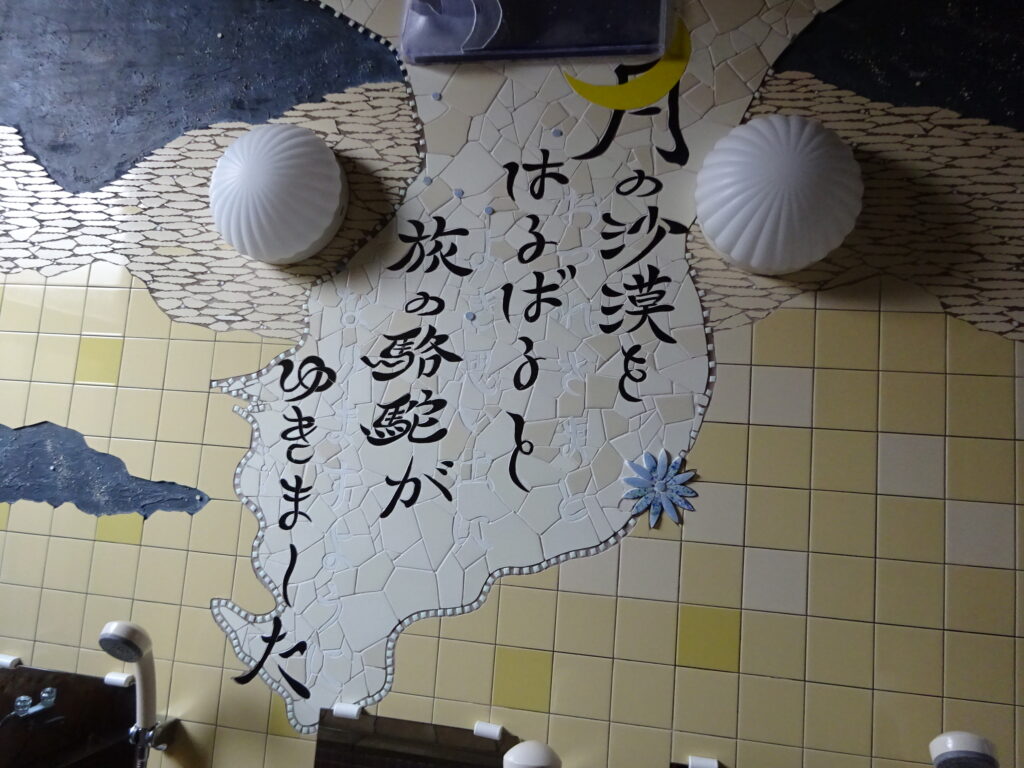 月の沙漠を
はるばると
旅の駱駝が
ゆきました